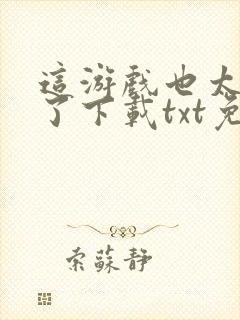 這游戲也太
了下載txt免
索蘇靜